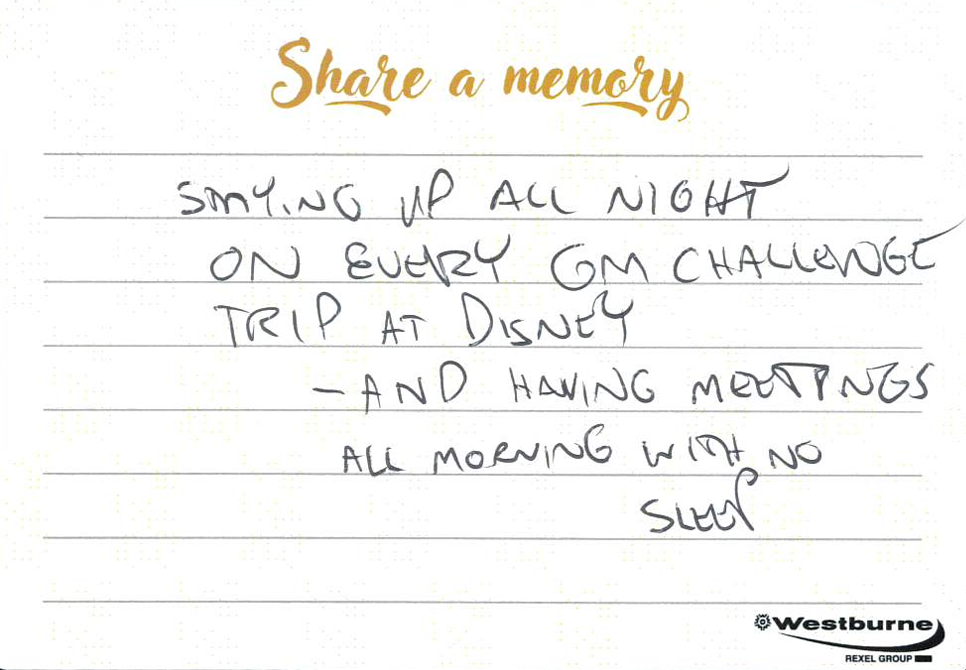 Share a memory
STAYING UP ALL NIGHT
ON EVERY GM CHALLENGE
TRIP AT DISNEY
- AND HAVING MEETINGS
ALL MORNING WITH NO
SLEEP
Westburne
REXEL GROUP